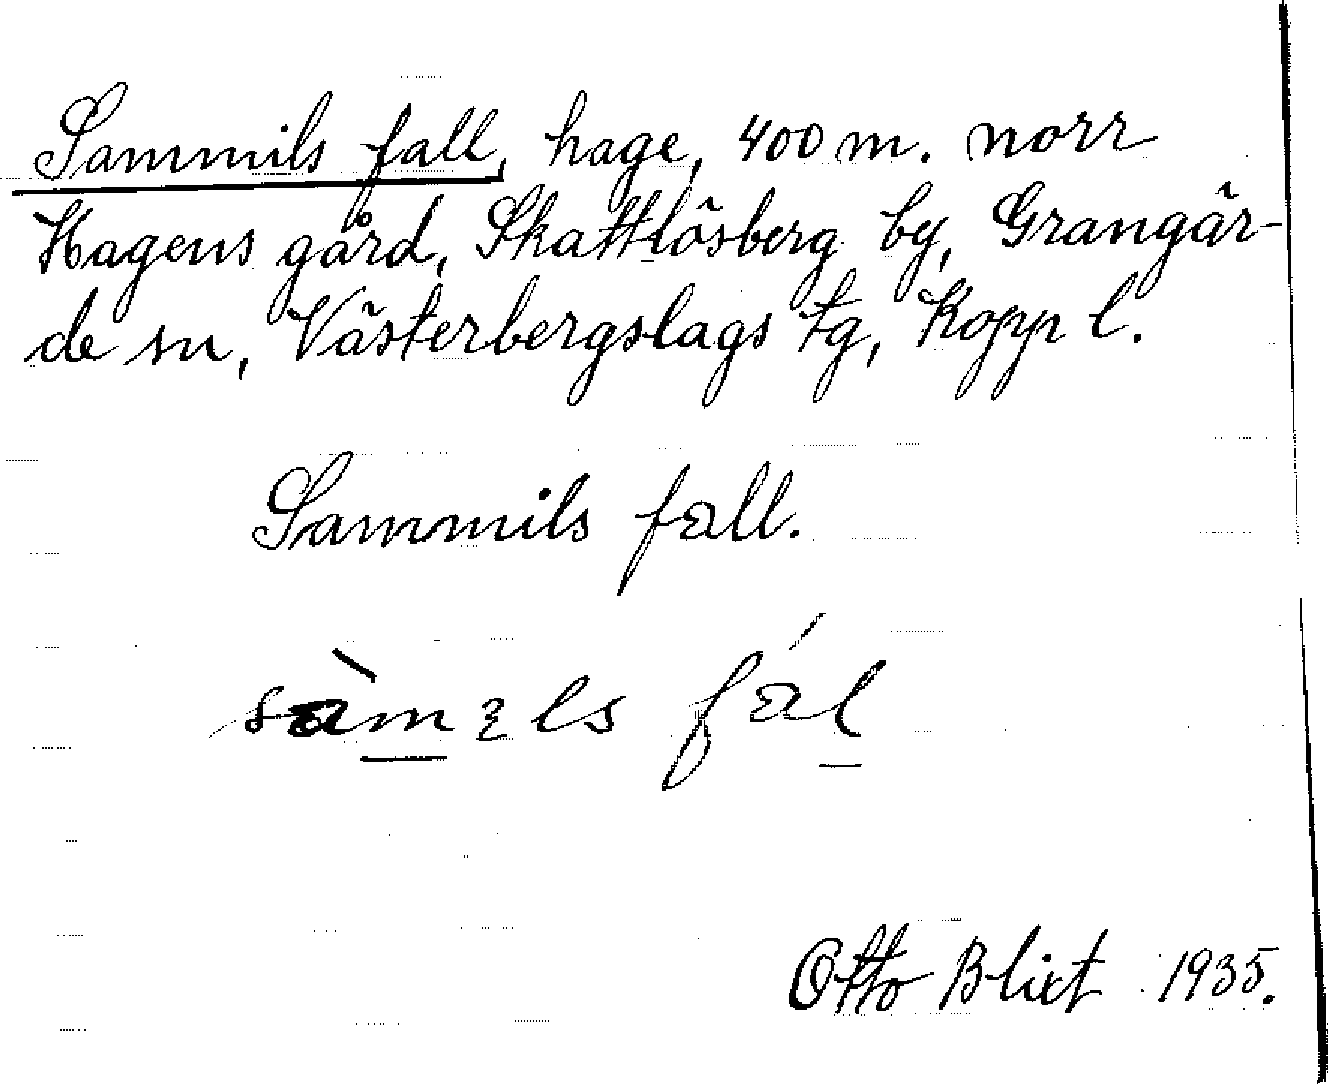 Sammils fall, hage, 400 m. norr
Hagens gård, Skattlösberg by, Grangär-
de sn, Västerbergslags tg, Kopp l.
Sammils fall.
fál
Otto Blixt 1935.